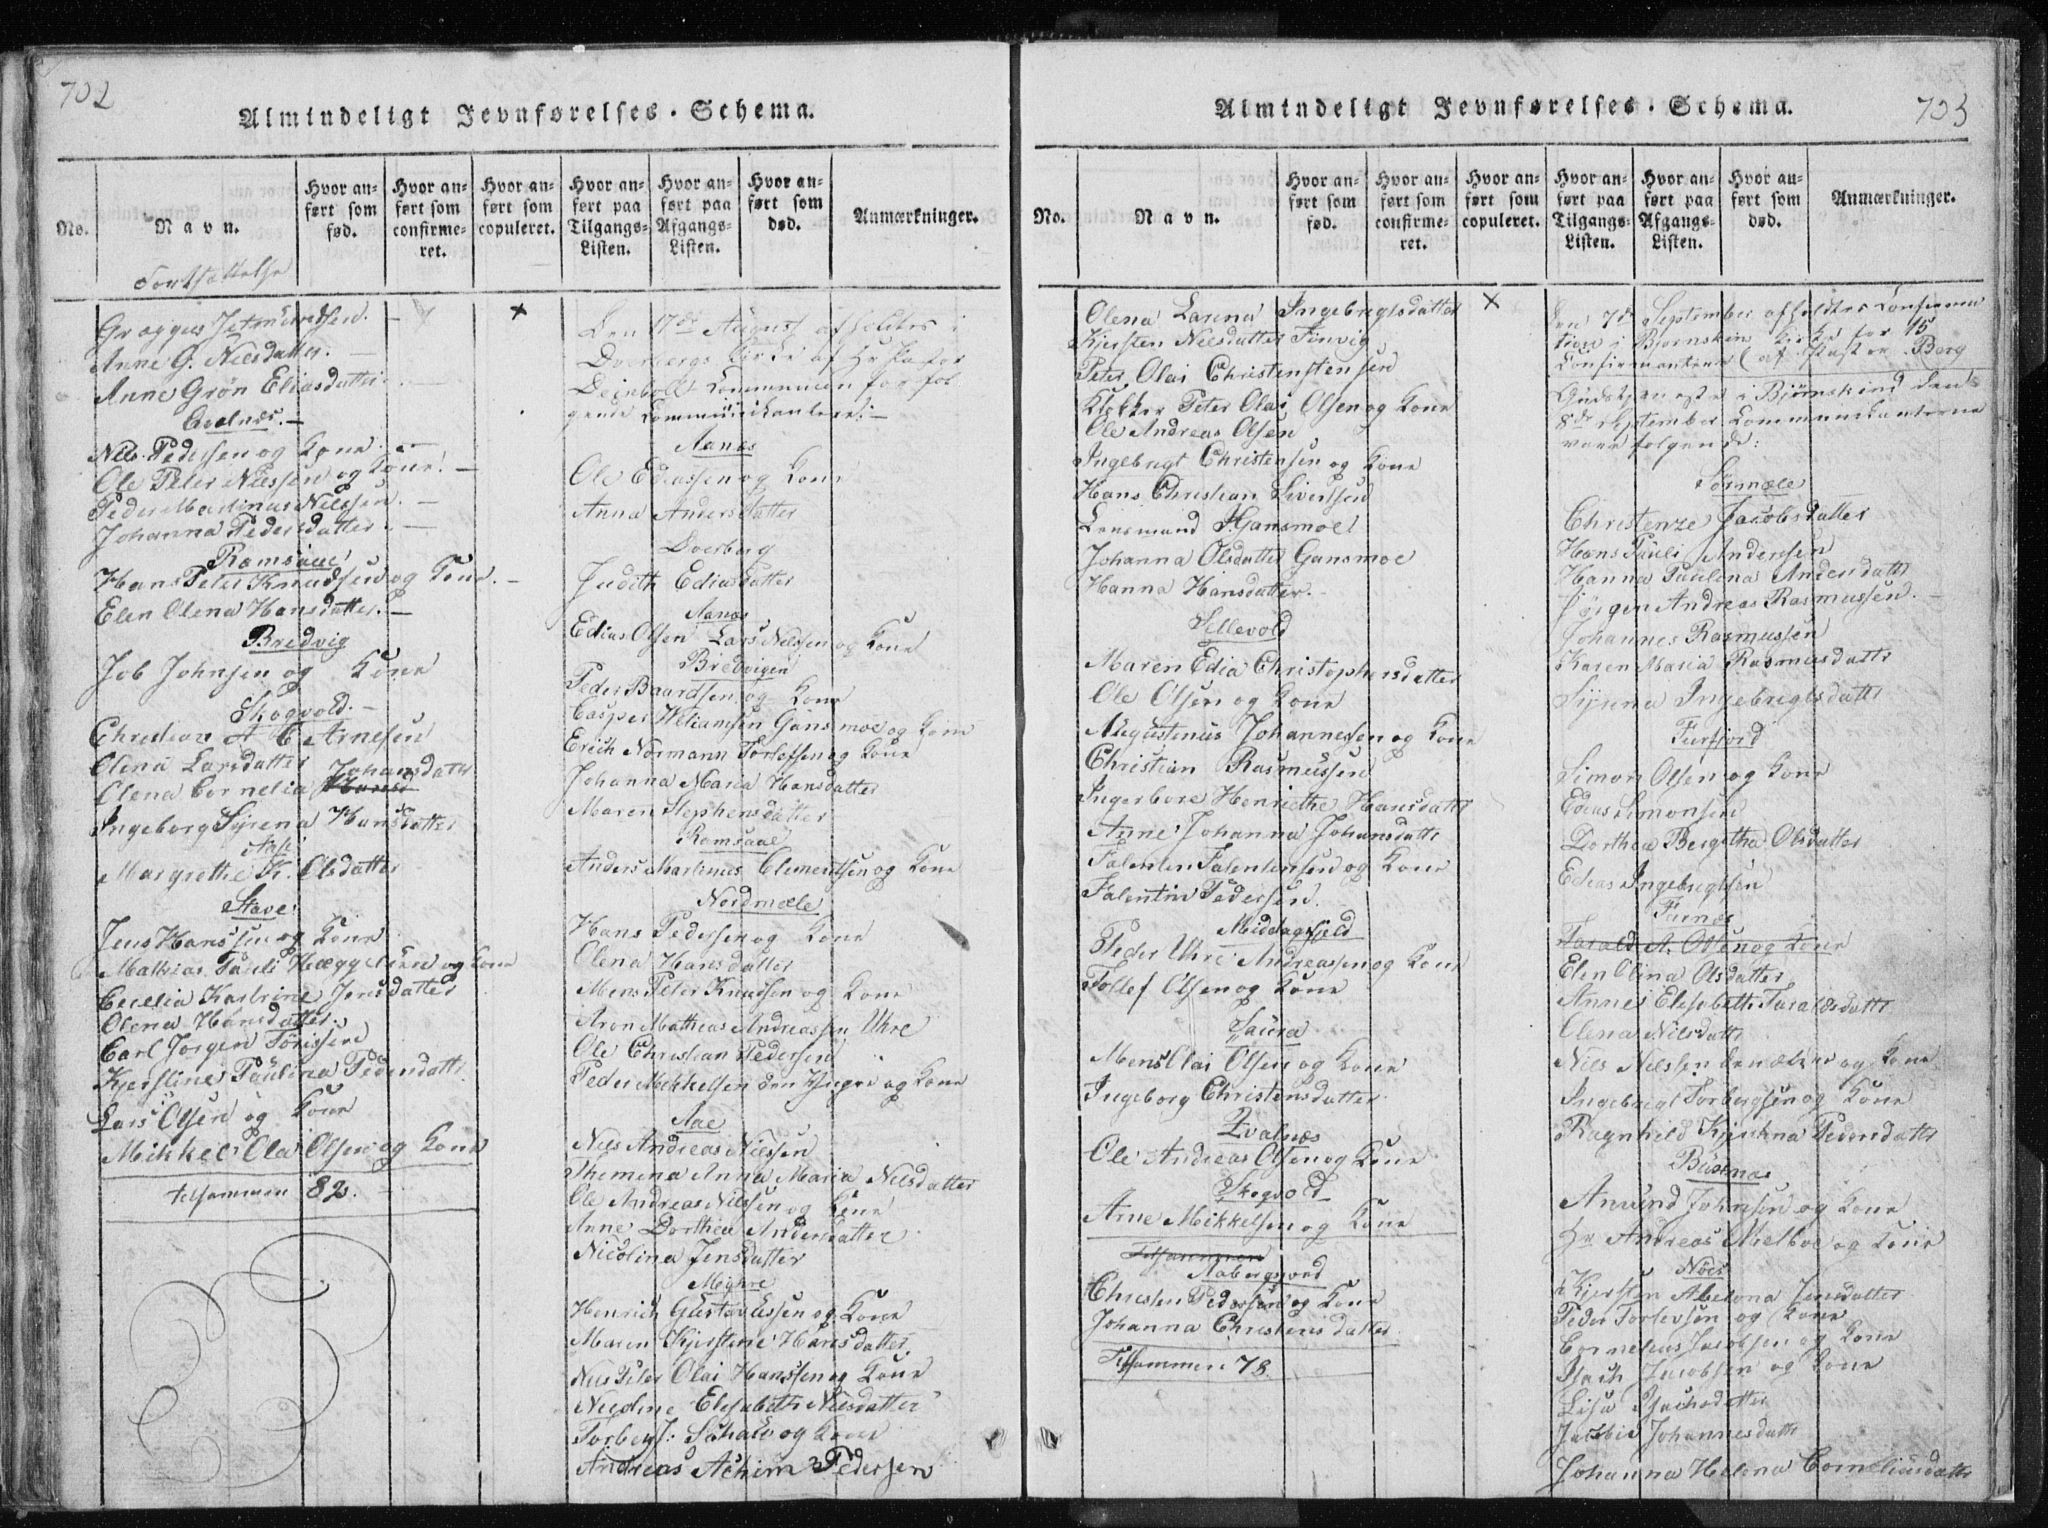 702
Almindeligt Jevnførelses-Schema.
No.
Navn.
Hvor anført som fød.
Hvor anført som confirmeret.
Hvor anført som copuleret.
Hvor anført paa Tilgangs-Listen.
Hvor anført paa Afgangs-Listen.
Hvor anført som død.
Anmærkninger.
Fortsættelse
Anne G. Nielsdatter. —
Anne Grøn Eliasdatter. —
Nils Pedersen og Kone. —
Ole Peter Nielssen og Kone. —
Peder Martinus Nilssen. —
Johanna Pedersdatter. —
Ramsaae
Hans Peter Knudssen og Kone. —
Elen Olena Hansdatter. —
Bredvig
Job Johnsen og Kone
Skogvold. —
Christian A C Arnesen
Olena Larsdatter
Olena Cornelia Johansdatter
Ingeborg Syrena Hansdatter
Margrethe K. Olsdatter
Stave
Jens Hanssen og Kone
Mathias Pauli Hægg og Kone
Cecelia Katrine Jensdatter
Olena Hansdatter.
Carl Jørgen Tørissen
Kjerstine Paulina Pedersdattr
Lars Olsen og Kone
Mikkel Olai Olsen og Kone
tilsammen 82. —
×
Den 17de August afholdtes i
Dverbergs Kirke af Hr Pastor
Deinboll Communion for føl
gende Communikantere: —
Aanæs
Ole Ediassen og Kone
Anna Andersdatter
Dverberg
Judith Ediasdatter
Aanæs
Edias Olsen Lars Nilssen og Kone
Bredvigen
Peder Baardsen og Kone
Casper Wiliamsen Gansmoe og Kone
Erich Normann Torlefsen og Kone
Johanna Maria Hansdatter
Maren Stephensdatter
Ramsaae
Anders Martinus Clementsen og Kone
Nordmæle
Hans Pedersen og Kone
Olena Hansdatter
Mens Peter Knudsen og Kone
Aron Mathias Andreassen Uhre
Ole Christian Pedersen
Peder Mikkelsen den Yngre og Kone
Aae
Nils Andreas Nilssen
Themina Anna Maria Nilsdatter
Ole Andreas Nilssen og Kone
Anne Dorthea Andersdatter
Nicolina Jensdatter
Myhre
Henrich Gustavessen og Kone
Maren Kjerstene Hansdatter
Nils Peter Olai Hanssen og Kone
Nicoline Elisabeth Nilsdatter
Torber J: Schalv og Kone
Andreas Achim Pedersen
703
Almindeligt Jevnførelses-Schema.
No.
Navn.
Hvor anført som fød.
Hvor anført som confirmeret.
Hvor anført som copuleret.
Hvor anført paa Tilgangs-Listen.
Hvor anført paa Afgangs-Listen.
Hvor anført som død.
Anmærkninger.
Olena Larena Ingebregtsdatter ×
Kjersten Nielsdatter Finvig
Peter Olai Christenstensen
Klokker Peter Olai Olsen og Kone
Ole Andreas Olsen
Ingebrigt Christensen og Kone
Hans Christian Sivertsen
Lensmand Gansmoe
Johanna Olsdatter Gansmoe
Hanna Hansdatter.
Sellevold
Maren Edia Christophersdatter
Ole Olsen og Kone
Augustinus Johannessen og Kone
Christian Rasmussen
Ingerbore Henriethe Hansdattr
Anne Johanna Johansdattr
Falenten Falentensen og Kone
Falentin Pedersen.
Middagsfjeld
Peder Uhre Andreassen og Kone
Tollef Olsen og Kone
Saura
Mens Olai Olsen og Kone
Ingeborg Christensdatter
Qvalnæs
Ole Andreas Olsen og Kone
Skogvold
Arne Mikkelsen og Kone
Tilsammen
Aabergsjord
Christen Pedersen og Kone
Johanna Christensdatter
Tilsammen 78.
Den 7de September afholdtes Confirma
tion i Bjørnskin Kirke for 15
Confirmantere (af Pastor Berg
Gudstjeneste i Bjørnskind den
8de September Communikanterne
vare følgende:
Sørmæle
Christenze Jacobsdatter
Hans Pauli Andersen
Hanna Paulena Andersdattr
Jørgen Andreas Rasmussen. —
Johannes Rasmussen
Karen Maria Rasmusdattr
Syrena Ingebregtsdattr
Furfjord
Simon Olsen og Kone
Edeas Simonsen
Dorthea Bergitha Olsdatter
Edias Ingebregtsen
Farnæs
Farald A. Olsen og Kone
Elen Olina Olsdatter
Anne Elisabeth Faraldsdattr
Olena Nilsdattr
Nils Nilssen den ældre og Kone
Ingebregt Torbergsen og Kone
Ragnhild Kjirstina Pedersdattr
Buenæs
Anund Johnsen og Kone
Hr Andreas Mielboe og Kone
Nöes
Kjersten Abelona Jensdatter
Peder Torlevsen og Kone
Cornelius Jacobsen og Kone
Isach Jacobsen og Kone
Lisa Isachsdatter
Jacobia Johannesdattr
Johanna Helena Corneliusdattr